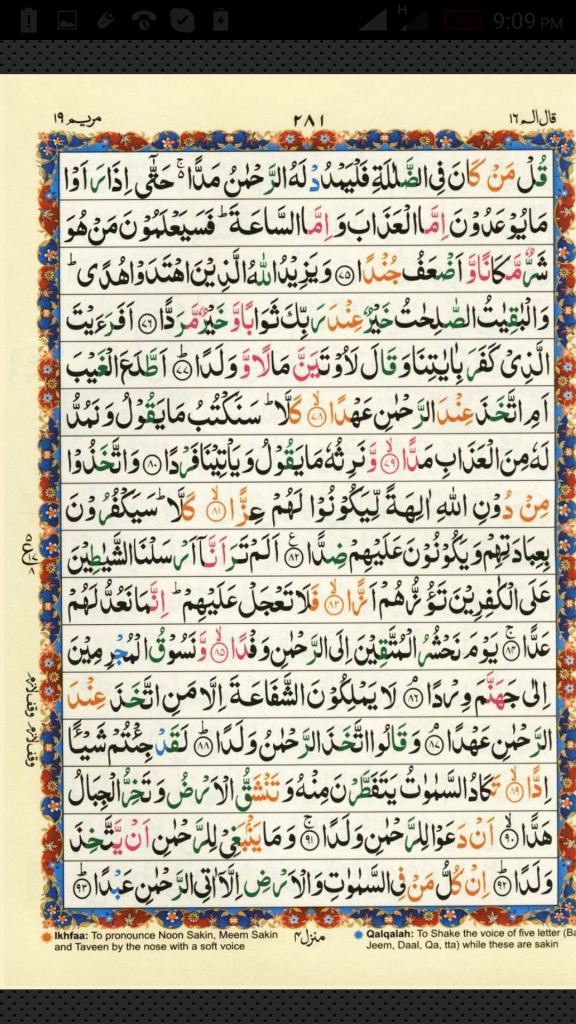 H 9:09 PM
قال الم ١٦ ٢٨١ مريم ١٩
قُلْ مَنْ كَانَ فِى الضَّلٰلَةِ فَلْيَمْدُدْ لَهُ الرَّحْمٰنُ مَدًّا ۚ حَتّٰٓى اِذَا رَاَوْا
مَا يُوْعَدُوْنَ اِمَّا الْعَذَابَ وَاِمَّا السَّاعَةَ ؕ فَسَيَعْلَمُوْنَ مَنْ هُوَ
شَرٌّ مَّكَانًا وَّاَضْعَفُ جُنْدًا ﴿۷۵﴾ وَيَزِيْدُ اللّٰهُ الَّذِيْنَ اهْتَدَوْا هُدًى ؕ
وَالْبٰقِيٰتُ الصّٰلِحٰتُ خَيْرٌ عِنْدَ رَبِّكَ ثَوَابًا وَّخَيْرٌ مَّرَدًّا ﴿۷۶﴾ اَفَرَءَيْتَ
الَّذِىْ كَفَرَ بِاٰيٰتِنَا وَقَالَ لَاُوْتَيَنَّ مَالًا وَّوَلَدًا ﴿۷۷﴾ ؕ اَطَّلَعَ الْغَيْبَ
اَمِ اتَّخَذَ عِنْدَ الرَّحْمٰنِ عَهْدًا ﴿۷۸﴾ ۙ كَلَّا ؕ سَنَكْتُبُ مَا يَقُوْلُ وَنَمُدُّ
لَهٗ مِنَ الْعَذَابِ مَدًّا ﴿۷۹﴾ ۙ وَّنَرِثُهٗ مَا يَقُوْلُ وَيَاْتِيْنَا فَرْدًا ﴿۸۰﴾ وَاتَّخَذُوْا
مِنْ دُوْنِ اللّٰهِ اٰلِهَةً لِّيَكُوْنُوْا لَهُمْ عِزًّا ﴿۸۱﴾ ۙ كَلَّا ؕ سَيَكْفُرُوْنَ
بِعِبَادَتِهِمْ وَيَكُوْنُوْنَ عَلَيْهِمْ ضِدًّا ﴿۸۲﴾ ع اَلَمْ تَرَ اَنَّآ اَرْسَلْنَا الشَّيٰطِيْنَ
عَلَى الْكٰفِرِيْنَ تَؤُزُّهُمْ اَزًّا ﴿۸۳﴾ ۙ فَلَا تَعْجَلْ عَلَيْهِمْ ؕ اِنَّمَا نَعُدُّ لَهُمْ
عَدًّا ﴿۸۴﴾ ۚ يَوْمَ نَحْشُرُ الْمُتَّقِيْنَ اِلَى الرَّحْمٰنِ وَفْدًا ﴿۸۵﴾ ۙ وَّنَسُوْقُ الْمُجْرِمِيْنَ
اِلٰى جَهَنَّمَ وِرْدًا ﴿۸۶﴾ ۘ لَا يَمْلِكُوْنَ الشَّفَاعَةَ اِلَّا مَنِ اتَّخَذَ عِنْدَ
الرَّحْمٰنِ عَهْدًا ﴿۸۷﴾ ۘ وَقَالُوا اتَّخَذَ الرَّحْمٰنُ وَلَدًا ﴿۸۸﴾ ؕ لَقَدْ جِئْتُمْ شَيْـًٔا
اِدًّا ﴿۸۹﴾ ۙ تَكَادُ السَّمٰوٰتُ يَتَفَطَّرْنَ مِنْهُ وَتَنْشَقُّ الْاَرْضُ وَتَخِرُّ الْجِبَالُ
هَدًّا ﴿۹۰﴾ ۙ اَنْ دَعَوْا لِلرَّحْمٰنِ وَلَدًا ﴿۹۱﴾ ۚ وَمَا يَنْۢبَغِىْ لِلرَّحْمٰنِ اَنْ يَّتَّخِذَ
وَلَدًا ﴿۹۲﴾ ؕ اِنْ كُلُّ مَنْ فِى السَّمٰوٰتِ وَالْاَرْضِ اِلَّآ اٰتِى الرَّحْمٰنِ عَبْدًا ﴿۹۳﴾ ؕ
وقف لازم وقف لازم
منزل ۴
Ikhfaa: To pronounce Noon Sakin, Meem Sakin
and Taveen by the nose with a soft voice
Qalqalah: To Shake the voice of five letter (Ba
Jeem, Daal, Qa, tta) while these are sakin